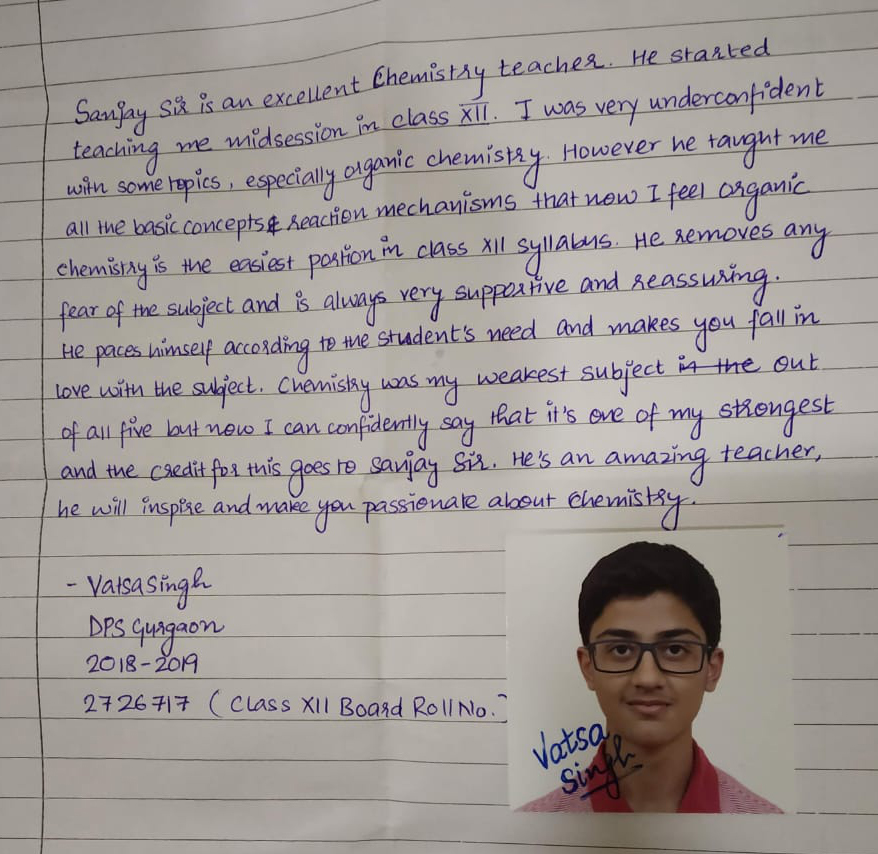 Sanjay Sir is an excellent Chemistry teacher. He started
teaching me midsession in class XII. I was very underconfident
with some topics, especially organic chemistry. However he taught me
all the basic concepts & reaction mechanisms that now I feel organic
chemistry is the easiest portion in class XII syllabus. He removes any
fear of the subject and is always very supportive and reassuring.
He paces himself according to the student's need and makes you fall in
love with the subject. Chemistry was my weakest subject in the out
of all five but now I can confidently say that it's one of my strongest
and the credit for this goes to Sanjay Sir. He's an amazing teacher,
he will inspire and make you passionate about Chemistry.
- Vatsa Singh
DPS Gurgaon
2018-2019
2726717 (Class XII Board Roll No.)
Vatsa
Singh